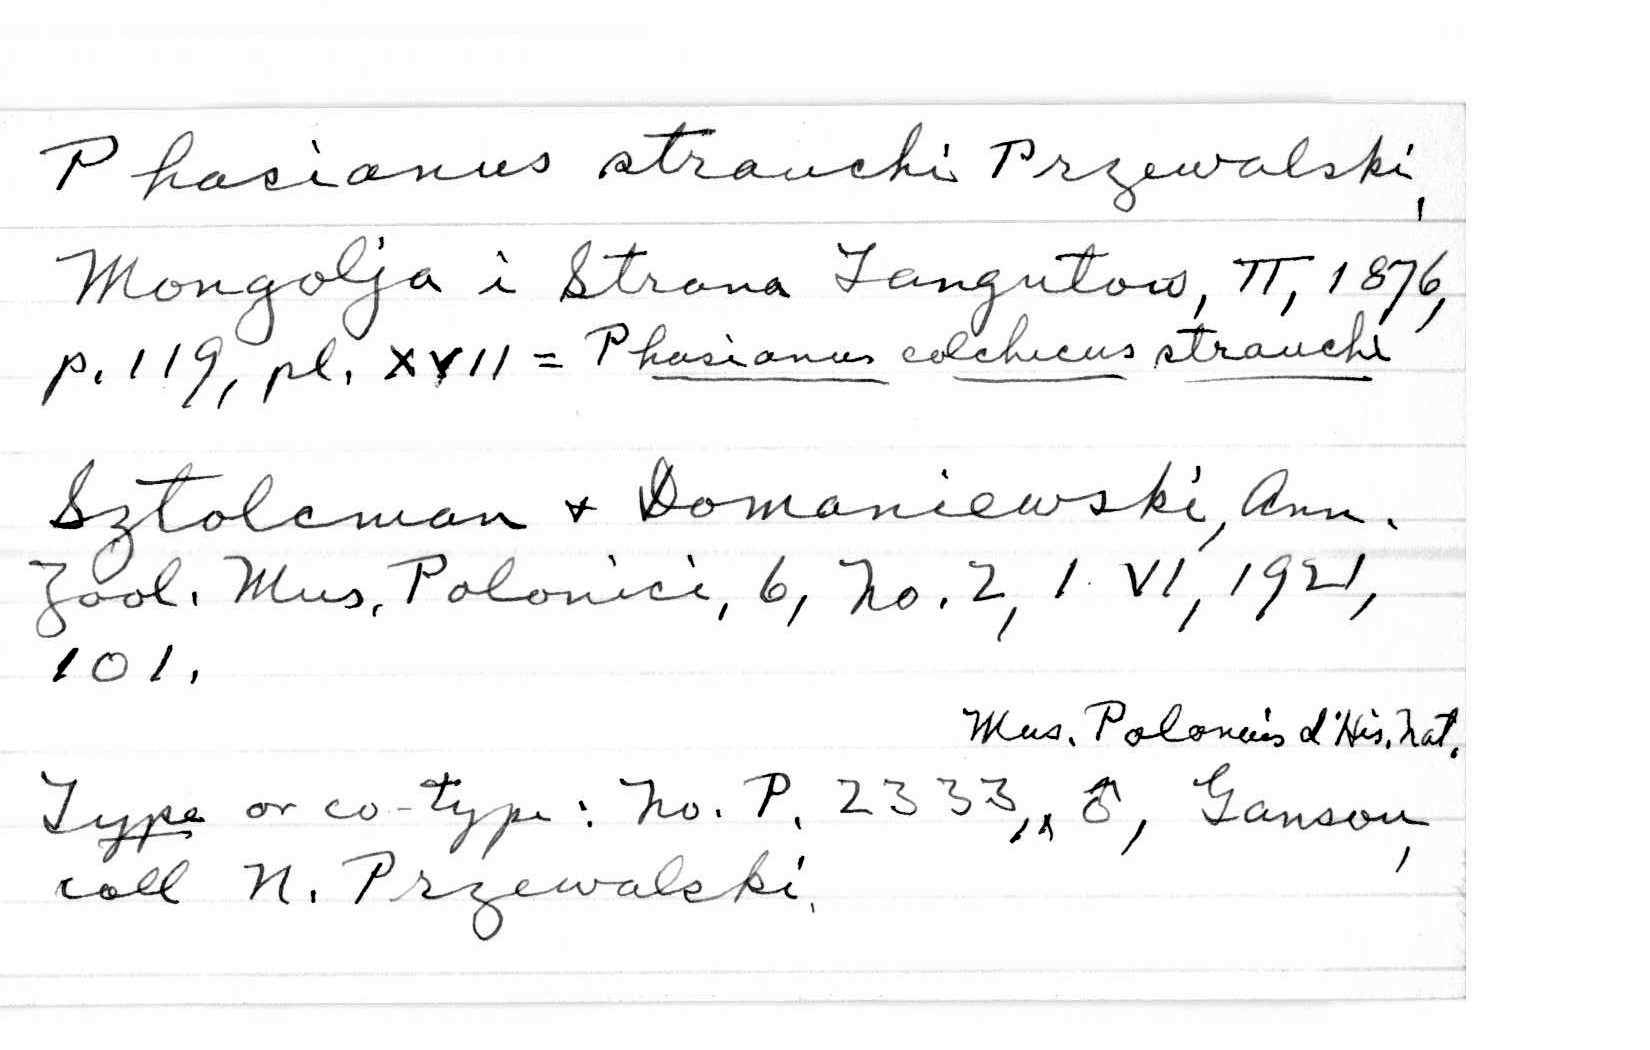 Phasianus strauchi Przewalski,
Mongolja i Strana Tangutow, II, 1876,
p. 119, pl. XVII = Phasianus colchicus strauchi
Sztolcman & Domaniewski, Ann.
Zool. Mus. Polonici, 6, No. 2, 1. VI, 1921,
101.
Mus. Polonais d'His. Nat.
Type or co-type: No. P. 2333, ♂, Gansou,
coll N. Przewalski.